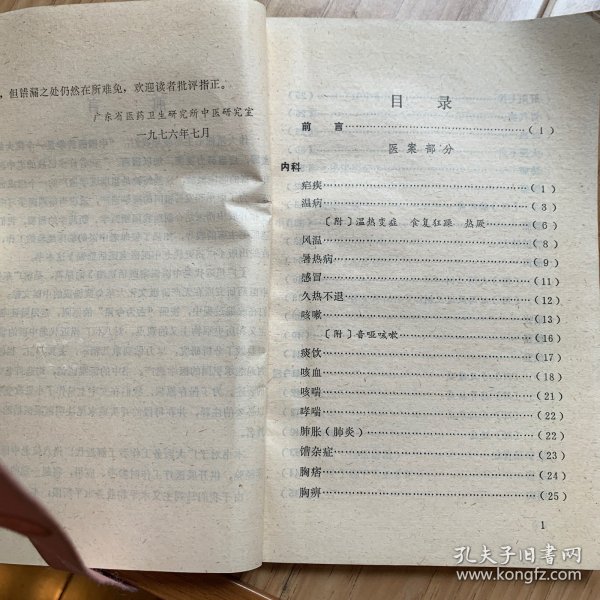 ，但错漏之处仍然在所难免，欢迎读者批评指正。
广东省医药卫生研究所中医研究室
一九七六年七月
目录
前言……（1）
医案部分
内科
疟疾……（1）
温病……（3）
〔附〕温热变症 食复狂躁 热厥……（6）
风温……（8）
暑热病……（9）
感冒……（11）
久热不退……（12）
咳嗽……（13）
〔附〕音哑咳嗽……（16）
痰饮……（17）
咳血……（18）
咳喘……（21）
哮喘……（22）
肺胀（肺炎）……（22）
馏杂症……（23）
胸痞……（24）
胸痹……（25）
1
孔夫子旧书网
www.kongfz.com